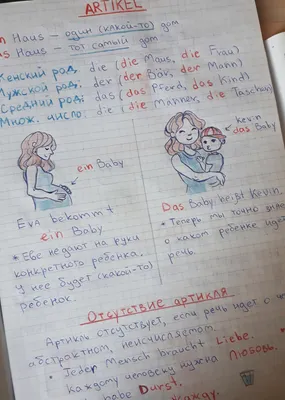 ARTIKEL
ein Haus — один (какой-то) дом
das Haus — тот самый дом
Женский род: die (die Maus, die Frau)
Мужской род: der (der Bär, der Mann)
Средний род: das (das Pferd, das Kind)
Множ. число: die (die Männer, die Taschen)
ein Baby
kevin
das Baby
Eva bekommt
ein Baby
* Еве не дают на руки
конкретного ребенка.
у нее будет (какой-то)
ребенок.
Das Baby heißt Kevin.
* Теперь мы точно знаем
о каком ребенке идет
речь.
Отсутствие артикля
Артикль отсутствует, если речь идет о
абстрактном, неисчисляемом.
* Jeder Mensch braucht Liebe.
каждому человеку нужна Любовь.
habe Durst.
жажду.